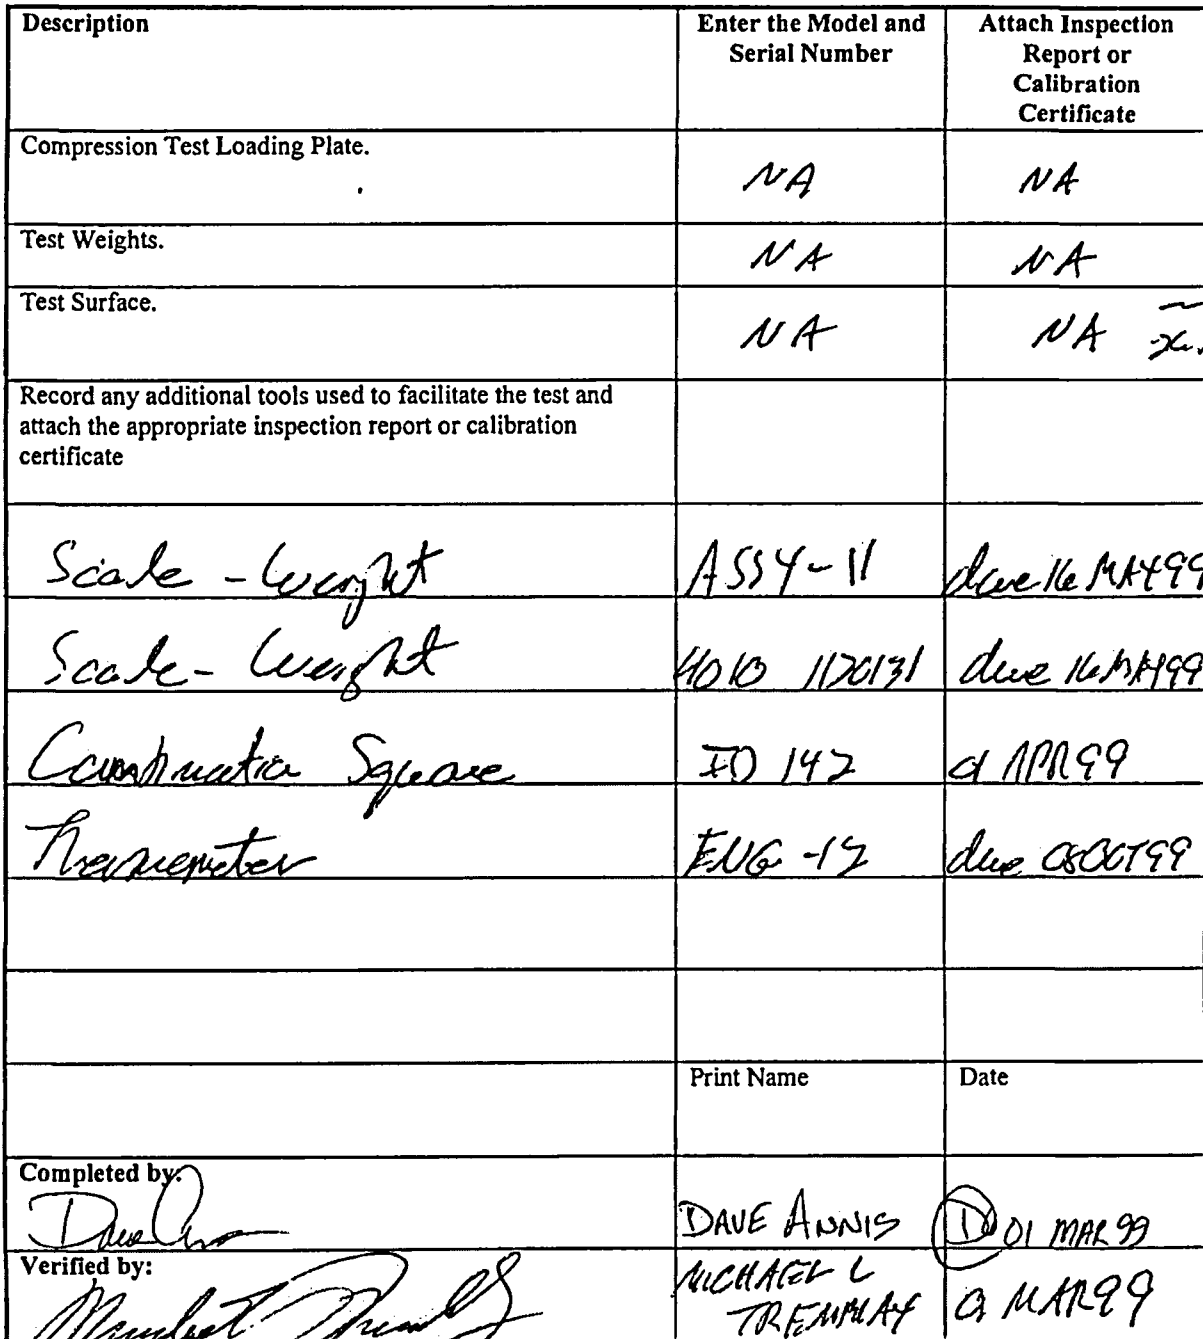 Description
Enter the Model and
Serial Number
Attach Inspection
Report or
Calibration
Certificate
Compression Test Loading Plate.
NA
NA
Test Weights.
NA
NA
Test Surface.
NA
NA
Record any additional tools used to facilitate the test and
attach the appropriate inspection report or calibration
certificate
Scale - Weight
ASSY-11
due 16 MAY99
Scale - Weight
1120131
due 16MAY99
Square
ID 142
APR99
Thermometer
ENG -12
due
Print Name
Date
Completed by:
DAVE ANNIS
01 MAR 99
Verified by:
MICHAEL L
TREMBLAY
MAR99